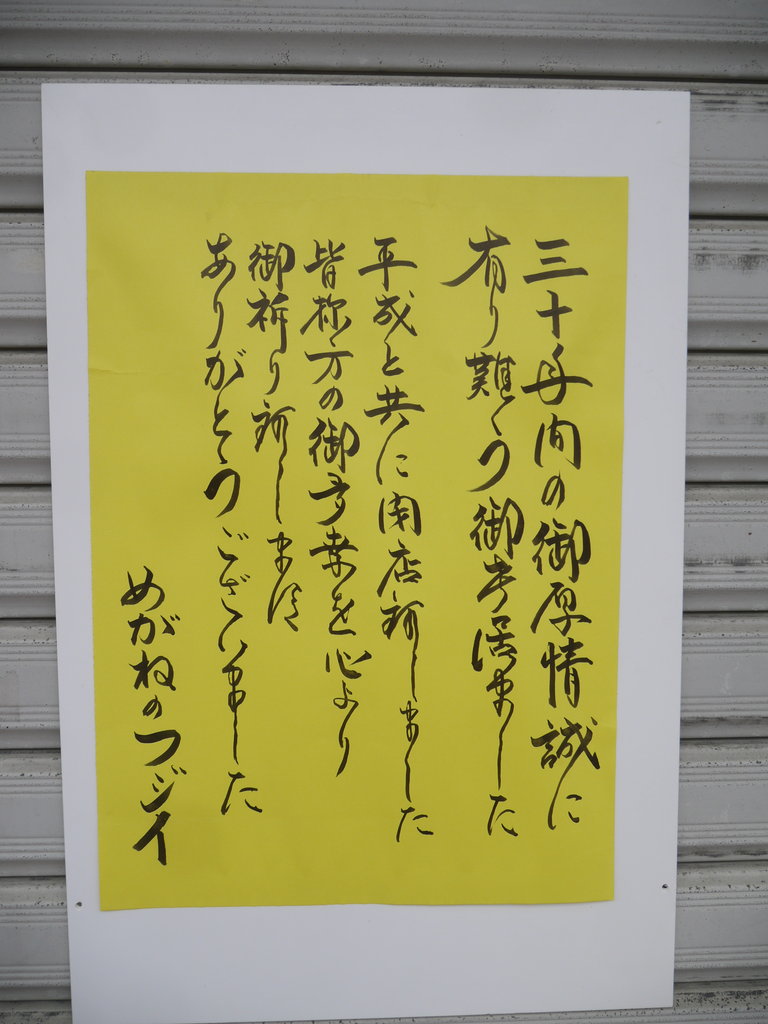 三十年間の御厚情誠に
有り難う御座居ました
平成と共に閉店致しました
皆様方の御多幸を心より
御祈り致します
ありがとうございました
めがねのフジイ